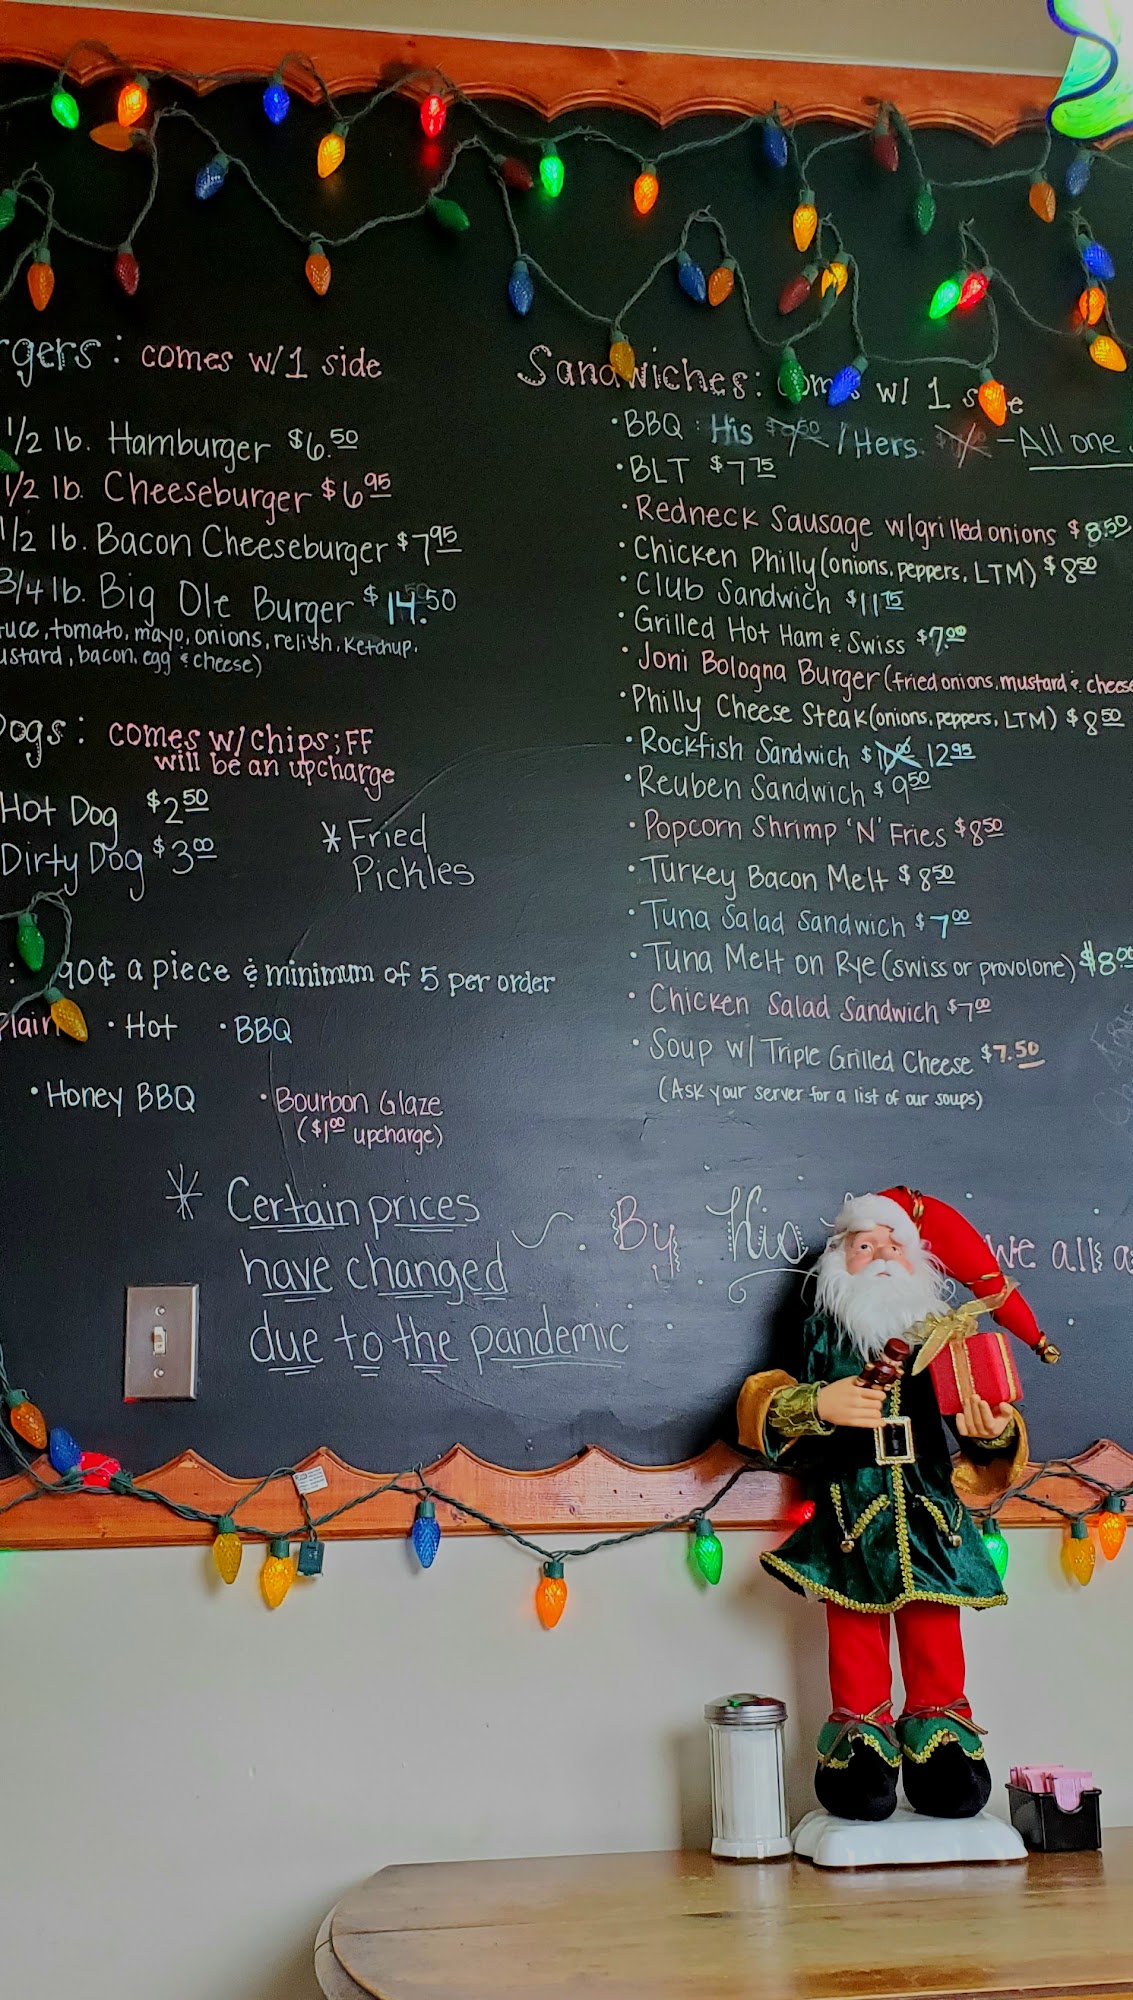 rgers: comes w/1 side
1/2 lb. Hamburger $6.50
1/2 lb. Cheeseburger $6.95
1/2 lb. Bacon Cheeseburger $7.95
3/4 lb. Big Ole Burger $14.50
uce, tomato, mayo, onions, relish, ketchup,
ustard, bacon, egg & cheese)
Dogs: comes w/chips; FF
will be an upcharge
Hot Dog $2.50
Dirty Dog $3.00
*Fried
Pickles
: 90¢ a piece & minimum of 5 per order
Plain • Hot • BBQ
• Honey BBQ • Bourbon Glaze
($1.00 upcharge)
* Certain prices
have changed
due to the pandemic
Sandwiches: comes w/ 1 side
• BBQ: His / Hers: - All one
• BLT $7.75
• Redneck Sausage w/grilled onions $8.50
• Chicken Philly (onions, peppers, LTM) $8.50
• Club Sandwich $11.75
• Grilled Hot Ham & Swiss $7.00
• Joni Bologna Burger (fried onions, mustard & cheese
• Philly Cheese Steak (onions, peppers, LTM) $8.50
• Rockfish Sandwich $11.00 12.95
• Reuben Sandwich $9.50
• Popcorn Shrimp 'N' Fries $8.50
• Turkey Bacon Melt $8.50
• Tuna Salad Sandwich $7.00
• Tuna Melt on Rye (swiss or provolone) $8.00
• Chicken Salad Sandwich $7.00
• Soup w/ Triple Grilled Cheese $7.50
(Ask your server for a list of our soups)
By His we all a